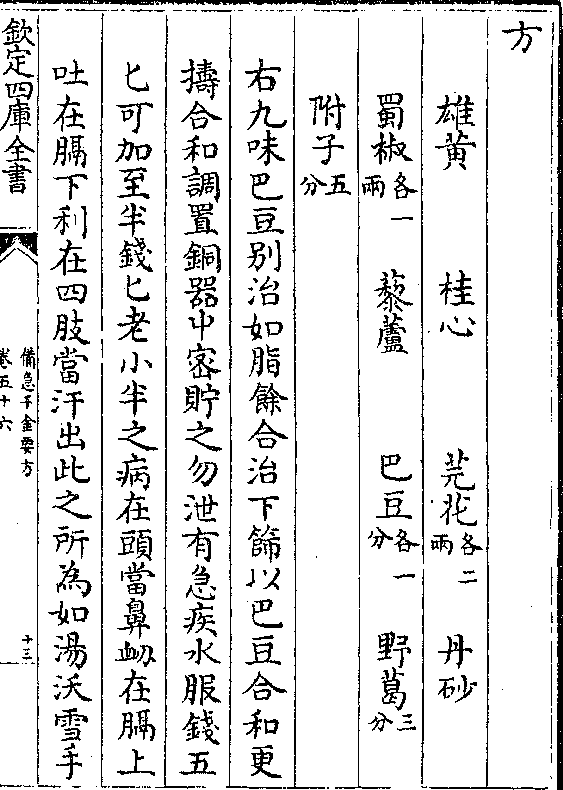 方
雄黄　桂心　芫花各二兩　丹砂
蜀椒各一兩　藜蘆　巴豆各一分　野葛三分
附子五分
右九味巴豆别治如脂餘合治下篩以巴豆合和更
擣合和調置銅器中密貯之勿泄有急疾水服錢五
匕可加至半錢匕老小半之病在頭當鼻衂在膈上
吐在膈下利在四肢當汗出此之所為如湯沃雪手
欽定四庫全書
備急千金要方
卷五十六
十三